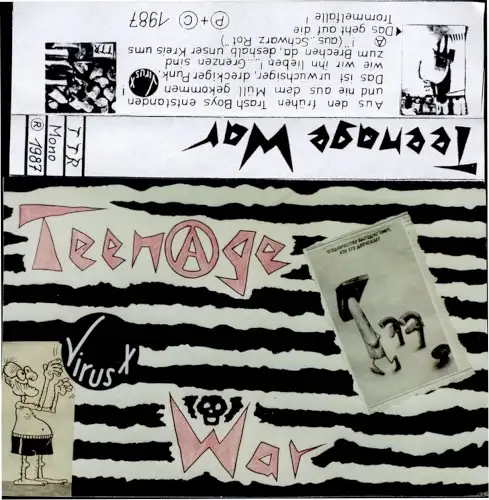 Aus den frühen Trash Boys entstanden
und nie aus dem Müll gekommen !
Das ist urwüchsiger, dreckiger Punk,
wie wir ihn lieben ! „Grenzen sind
zum Brechen da, deshalb unser Kreis ums
Ⓐ !" (aus „Schwarz Rot")
Das geht auf die
Trommelfälle !
Ⓟ + Ⓒ 1987
Virus X
TTR
Teenage War
TTR
Mono
Ⓡ 1987
TeenⒶge
Virus X
War